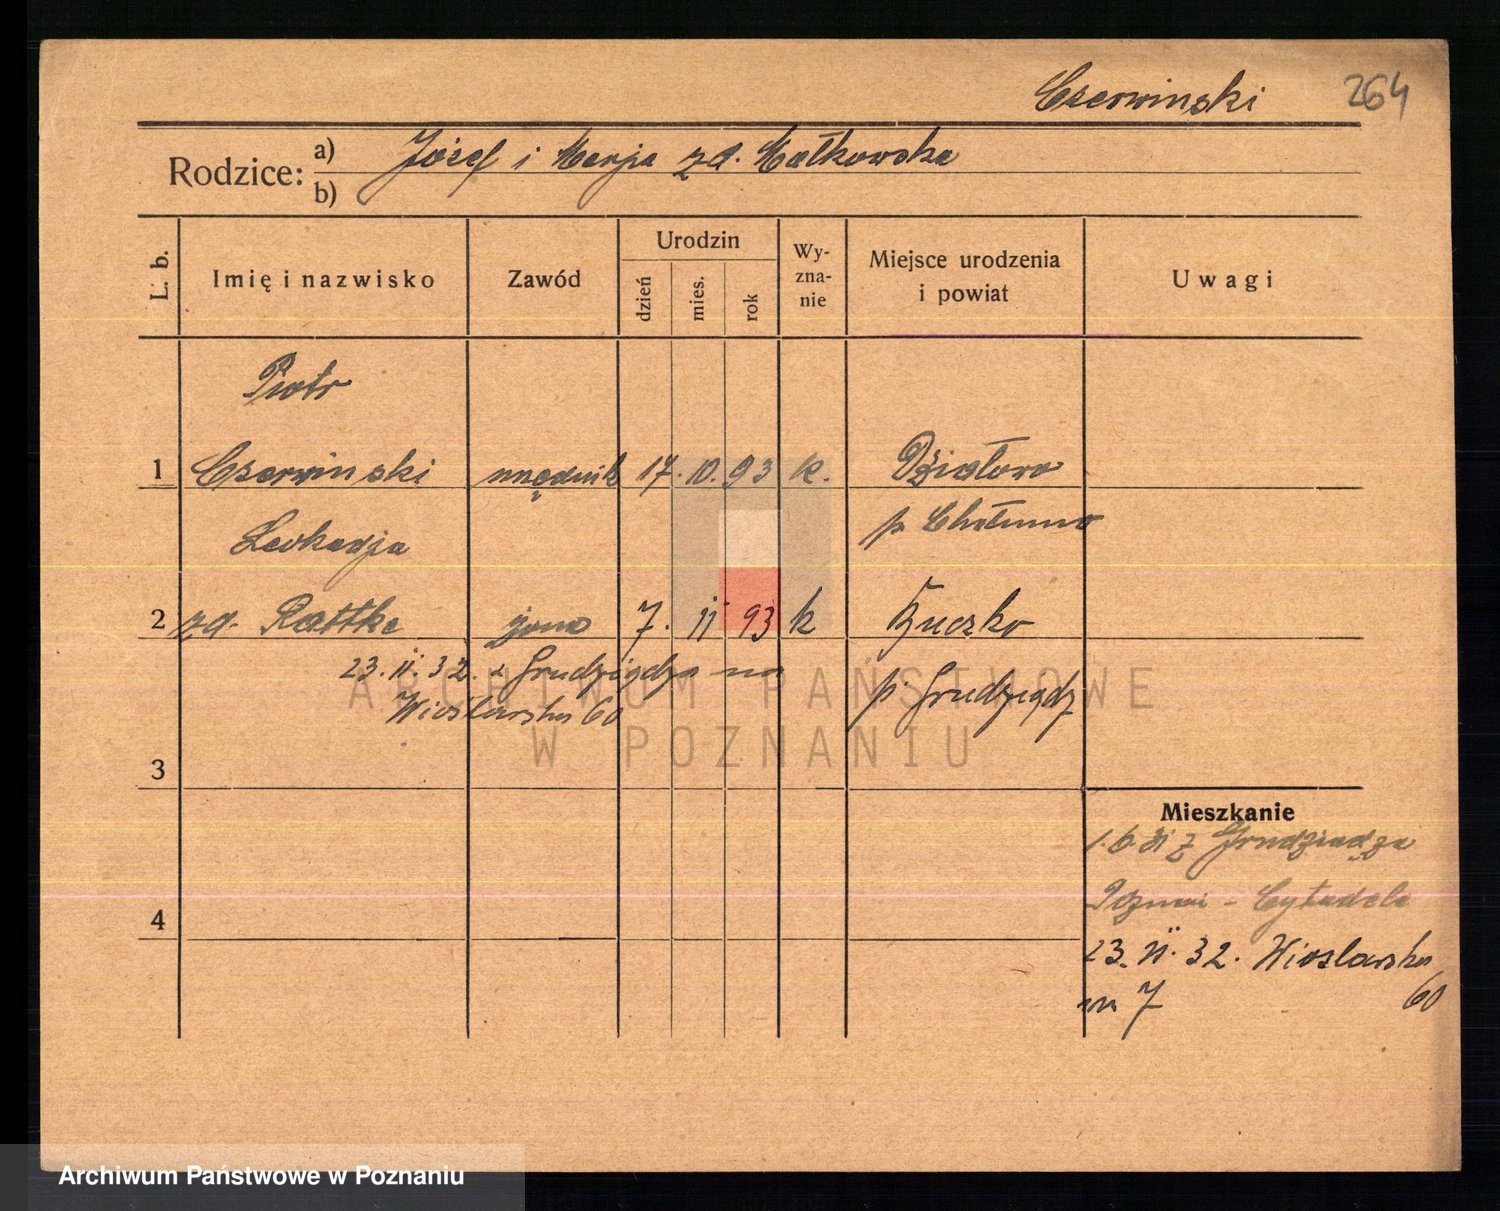 Czerwinski 264
Rodzice: a) Józef i Marja zd. Małkowska
b)
L. b.
Imię i nazwisko
Zawód
Urodzin
dzień
mies.
rok
Wy-
zna-
nie
Miejsce urodzenia
i powiat
Uwagi
Piotr
1 Czerwinski urzędnik 17. 10. 93 k. Działowo
p. Chełmno
Leokadja
2 zd. Rattke żona 7. II 93 k
23. II. 32. z Grudziądza na
p. Grudziądz
Wioślarska 60
3
Mieszkanie
1.6.31 z Grudziądza
4
Poznań - Cytadela
23. II. 32. Wioslarska
60
m 7
ARCHIWUM PAŃSTWOWE
W POZNANIU
Archiwum Państwowe w Poznaniu